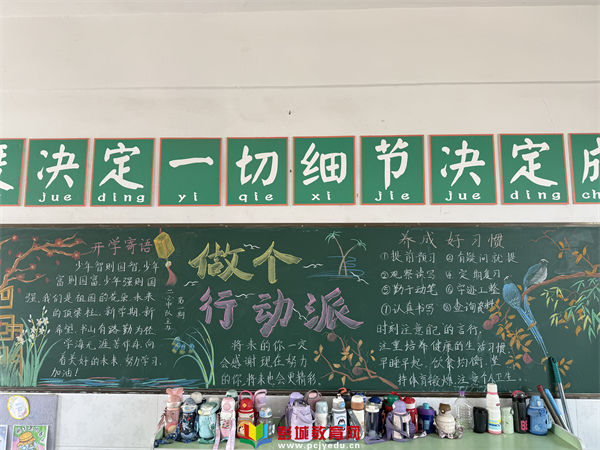 决定一切细节决定
jue ding yi qie xi jie jue ding
开学寄语
少年智则国智,少年
富则国富,少年强则国
强,我们是祖国的花朵,未来
的顶梁柱。新学期,新
希望,书山有路勤为径
学海无涯苦作舟,向
着美好的未来,努力学习,
加油!
第一期
做个
行动派
将来的你一定
会感谢现在努力
的你,将来也会更精彩。
养成好习惯
①提前预习 ⑤有疑问就提
②观察读写 ⑥定期复习
③勤于动笔 ⑦字迹工整
①认真书写 ⑧查询资料
时刻注意自己的言行,
注重培养健康的生活习惯,
早睡早起,饮食均衡,坚
持体育锻炼,注意个人卫生。
彭城教育网
www.pcjyedu.cn